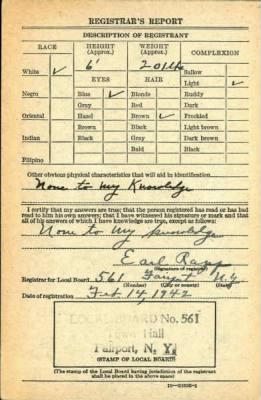 REGISTRAR'S REPORT
DESCRIPTION OF REGISTRANT
RACE HEIGHT (Approx.) WEIGHT (Approx.) COMPLEXION
White ✓ 6' 201 lbs Sallow
Light ✓
EYES HAIR
Negro Blue ✓ Blonde Ruddy
Gray Red Dark
Oriental Hazel Brown ✓ Freckled
Brown Black Light brown
Indian Black Gray Dark brown
Bald Black
Filipino
Other obvious physical characteristics that will aid in identification
None to my Knowledge
I certify that my answers are true; that the person registered has read or has had
read to him his own answers; that I have witnessed his signature or mark and that
all of his answers of which I have knowledge are true, except as follows:
None to my knowledge
Earl
(Signature of registrar)
Registrar for Local Board 561 N.Y.
(Number) (City or county) (State)
Date of registration Feb 14, 1942
LOCAL BOARD No. 561
Town Hall
Fairport, N. Y.
(STAMP OF LOCAL BOARD)
(The stamp of the Local Board having jurisdiction of the registrant
shall be placed in the above space)